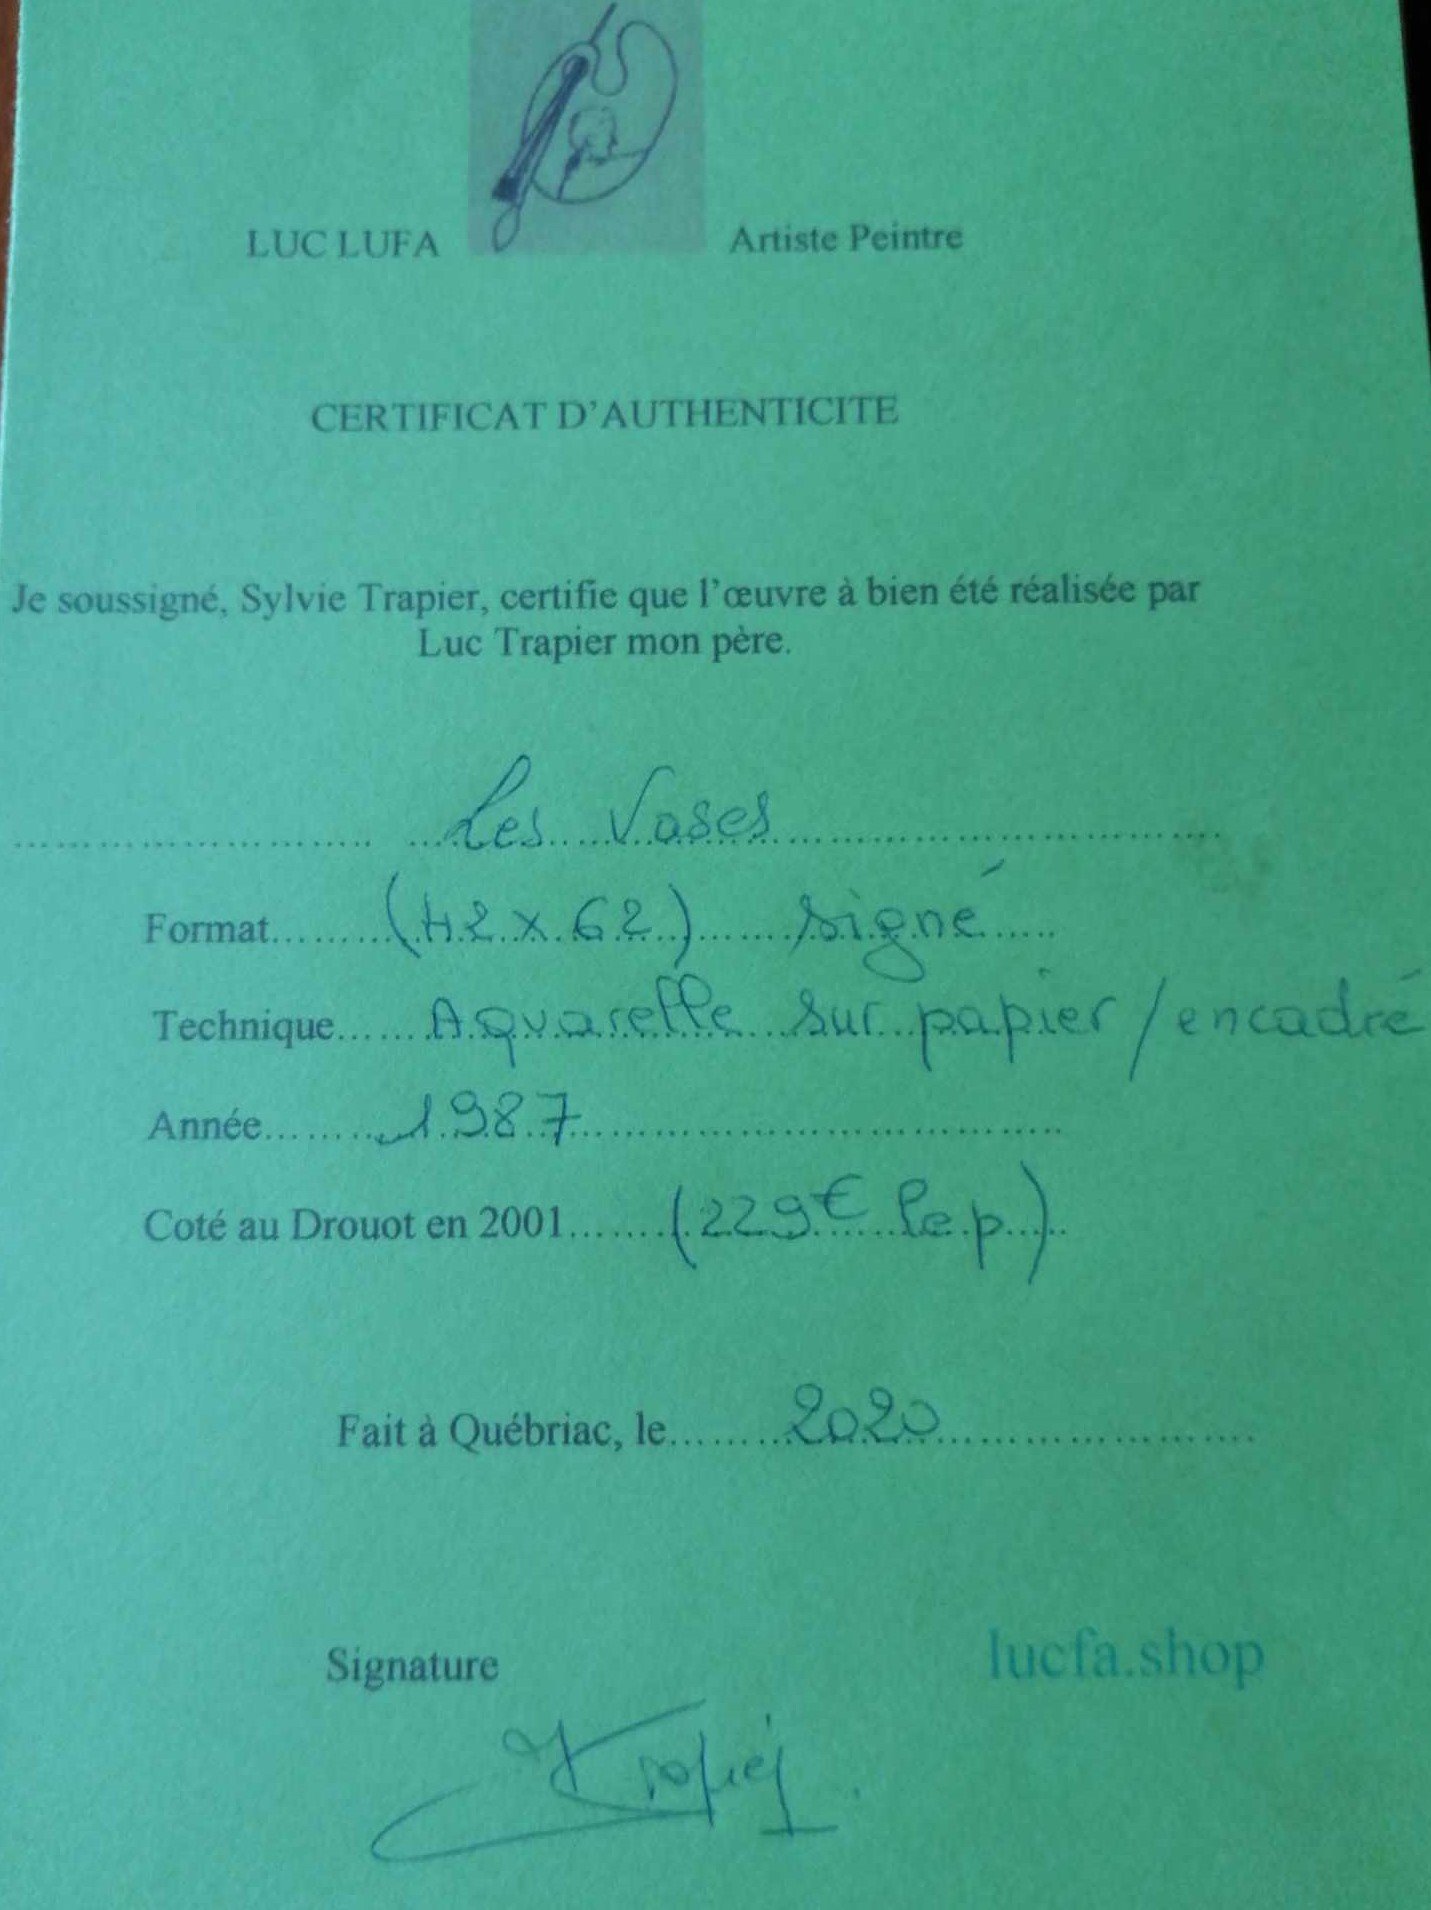 LUC LUFA Artiste Peintre
CERTIFICAT D'AUTHENTICITE
Je soussigné, Sylvie Trapier, certifie que l'œuvre à bien été réalisée par
Luc Trapier mon père.
Les Vases
Format......... (42 x 62) signé
Technique...... Aquarelle sur papier / encadré
Année......... 1987
Coté au Drouot en 2001....... (229€ le p)
Fait à Québriac, le........ 2020
Signature lucfa.shop
Trapier